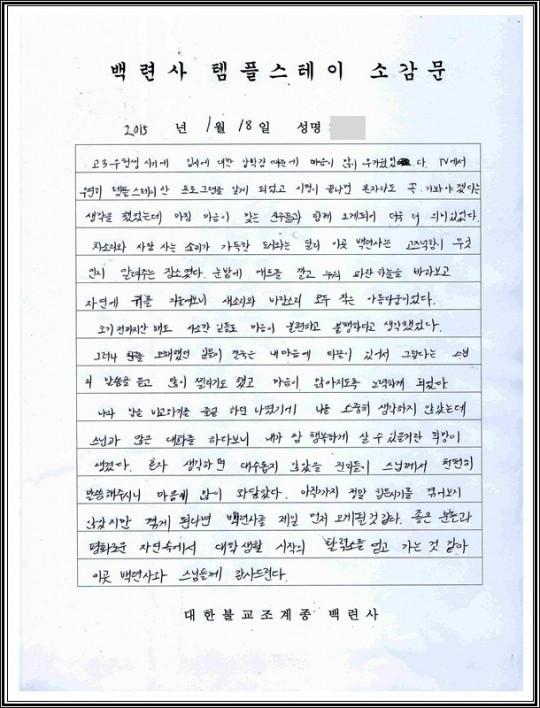 백련사 템플스테이 소감문
2015 년 1월 18일 성명
고3 수험생 시기에 입시에 대한 압박감 때문에 마음이 많이 무거웠었다. TV에서
우연히 템플스테이란 프로그램을 알게 되었고 시험이 끝나면 혼자라도 꼭 가봐야겠다는
생각을 했었는데 마침 마음이 맞는 친구들과 함께 오게되어 더욱 더 의미있었다.
차소리와 사람 사는 소리가 가득한 도시와는 달리 이곳 백련사는 고즈넉함이 무엇
인지 알려주는 장소였다. 눈밭에 매트를 깔고 누워 파란 하늘을 바라보고
자연에 귀를 기울여보니 새소리와 바람소리 모두 작은 아름다움이었다.
오기 전까지만 해도 사소한 일들로 마음이 불편하고 불행하다고 생각했었다.
그러나 오해했던 일들이 결국은 내 마음에 따라 있어서 그렇다는 스님
의 말씀을 듣고 많이 찔리기도 했고 마음이 앉아지도록 고맙게 되었다
나와 남을 비교하기를 즐겨 하던 나였기에 나를 소중히 생각하지 않았는데
스님과 많은 대화를 하다보니 내가 참 행복하게 살 수 있을거란 희망이
생겼다. 혼자 생각하면 대수롭지 않았을 진리들이 스님께서 천천히
말씀해주시니 마음에 많이 와닿았다. 아직까지 정말 힘든시기를 겪어보지
않았지만 겪게 된다면 백련사를 제일 먼저 오게될 것 같다. 좋은 분들과
평화로운 자연속에서 대학 생활 시작의 활력소를 얻고 가는 것 같아
이곳 백련사와 스님들께 감사드린다.
대한불교조계종 백련사